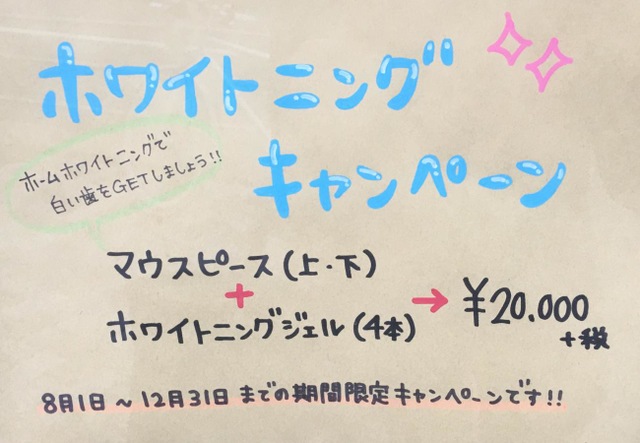 ホワイトニング
キャンペーン
ホームホワイトニングで
白い歯をGETしましょう!!
マウスピース(上・下)
+
ホワイトニングジェル(4本)
→ ¥20.000
+税
8月1日 ～ 12月31日 までの期間限定キャンペーンです!!